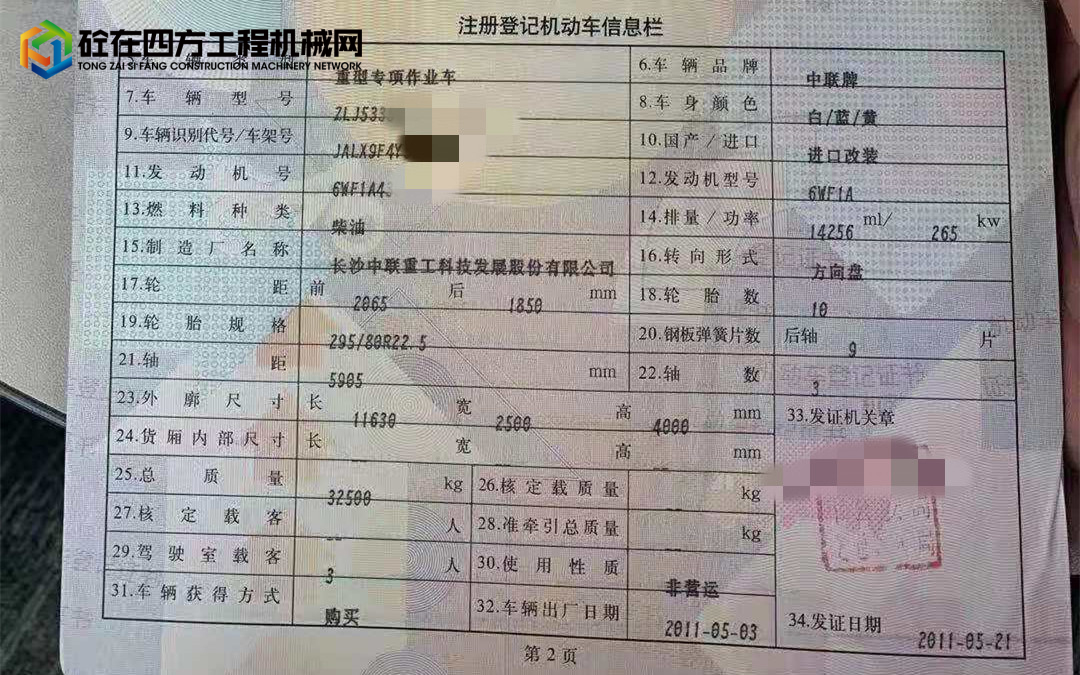 注册登记机动车信息栏
砼在四方工程机械网
TONG ZAI SI FANG CONSTRUCTION MACHINERY NETWORK
重型专项作业车 6.车辆品牌 中联牌
7.车辆型号 ZLJ533 8.车身颜色 白/蓝/黄
9.车辆识别代号/车架号 JALX9F4Y 10.国产/进口 进口改装
11.发动机号 6WF1A4 12.发动机型号 6WF1A
13.燃料种类 柴油 14.排量/功率 14256 ml/ 265 kw
15.制造厂名称 长沙中联重工科技发展股份有限公司 16.转向形式 方向盘
17.轮距 前 2065 后 1850 mm 18.轮胎数 10
19.轮胎规格 295/80R22.5 20.钢板弹簧片数 后轴 9 片
21.轴距 5905 mm 22.轴数 3
23.外廓尺寸 长 11630 宽 2500 高 4000 mm 33.发证机关章
24.货厢内部尺寸 长 -- 宽 -- 高 -- mm
25.总质量 32500 kg 26.核定载质量 -- kg
27.核定载客 -- 人 28.准牵引总质量 -- kg
29.驾驶室载客 3 人 30.使用性质 非营运
31.车辆获得方式 购买 32.车辆出厂日期 2011-05-03 34.发证日期 2011-05-21
第2页